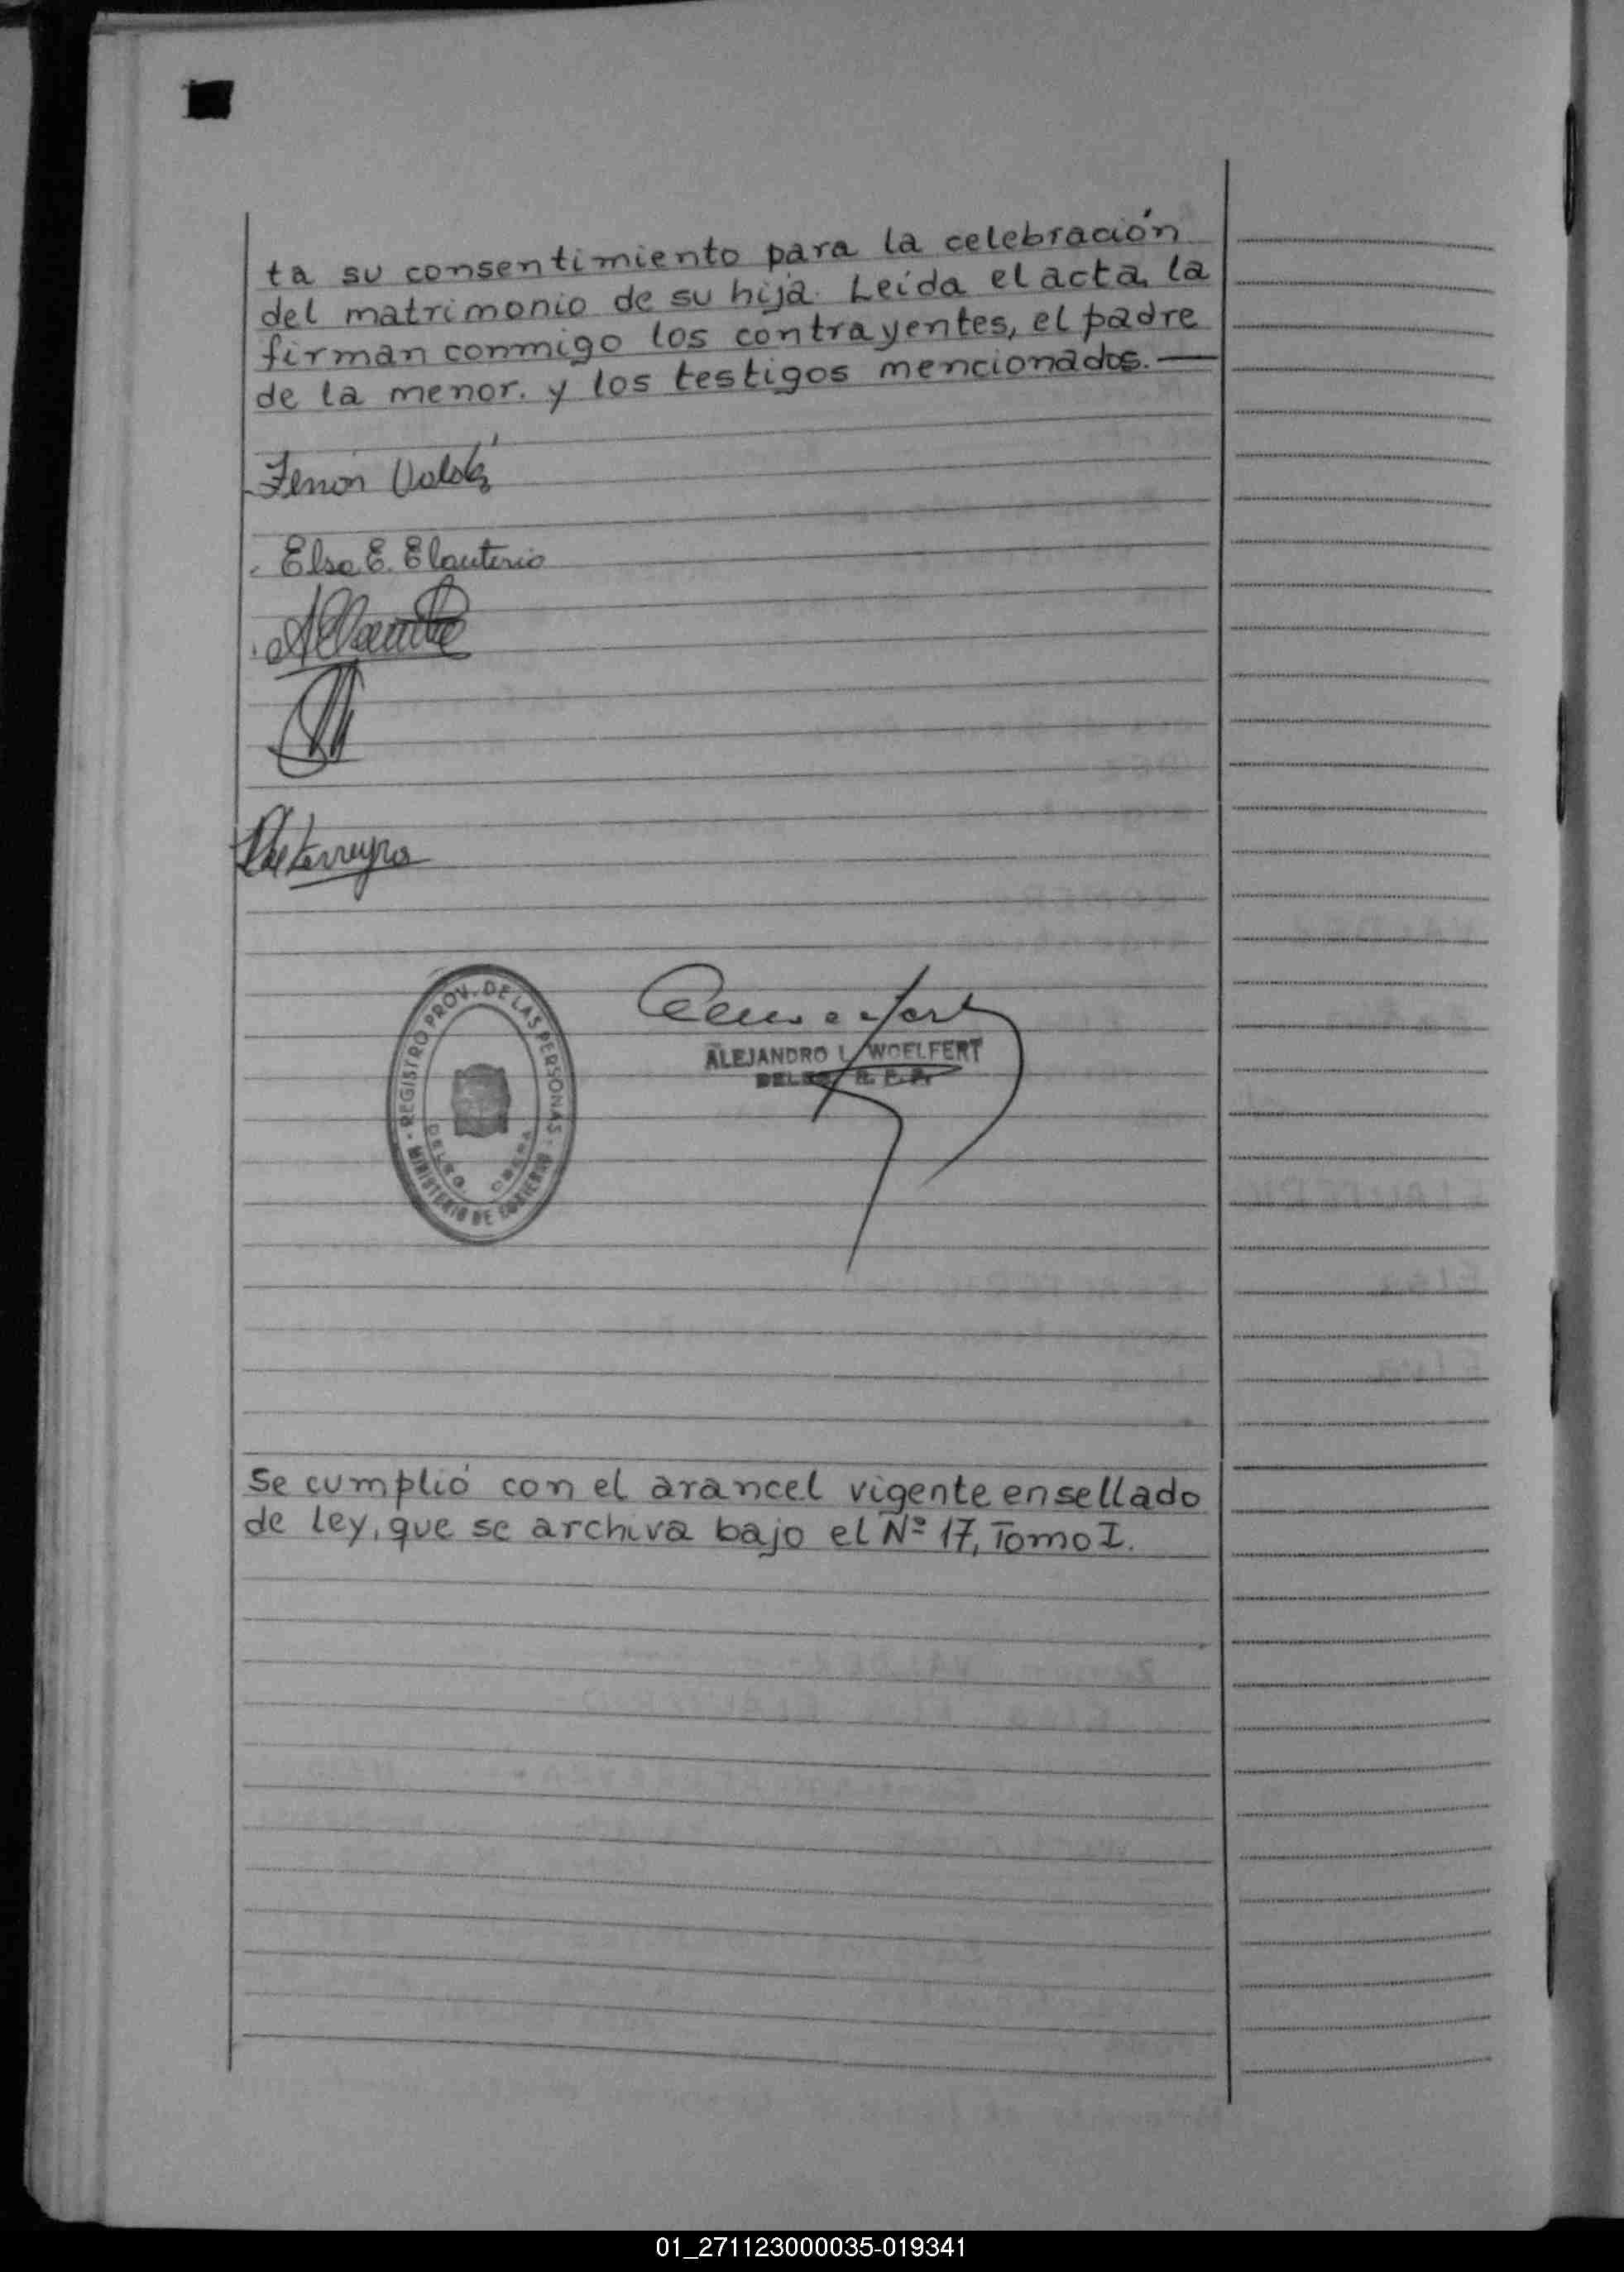 ta su consentimiento para la celebración
del matrimonio de su hija. Leída el acta, la
firman conmigo los contrayentes, el padre
de la menor. y los testigos mencionados.—
Zenón Valdéz
Elsa E. Elauterio
REGISTRO PROV. DE LAS PERSONAS
MINISTERIO DE GOBIERNO
DELEG. OBERA
ALEJANDRO L. WOELFERT
DELEG. R. P. P.
Se cumplió con el arancel vigente en sellado
de ley, que se archiva bajo el Nº 17, Tomo I.
01_271123000035-019341